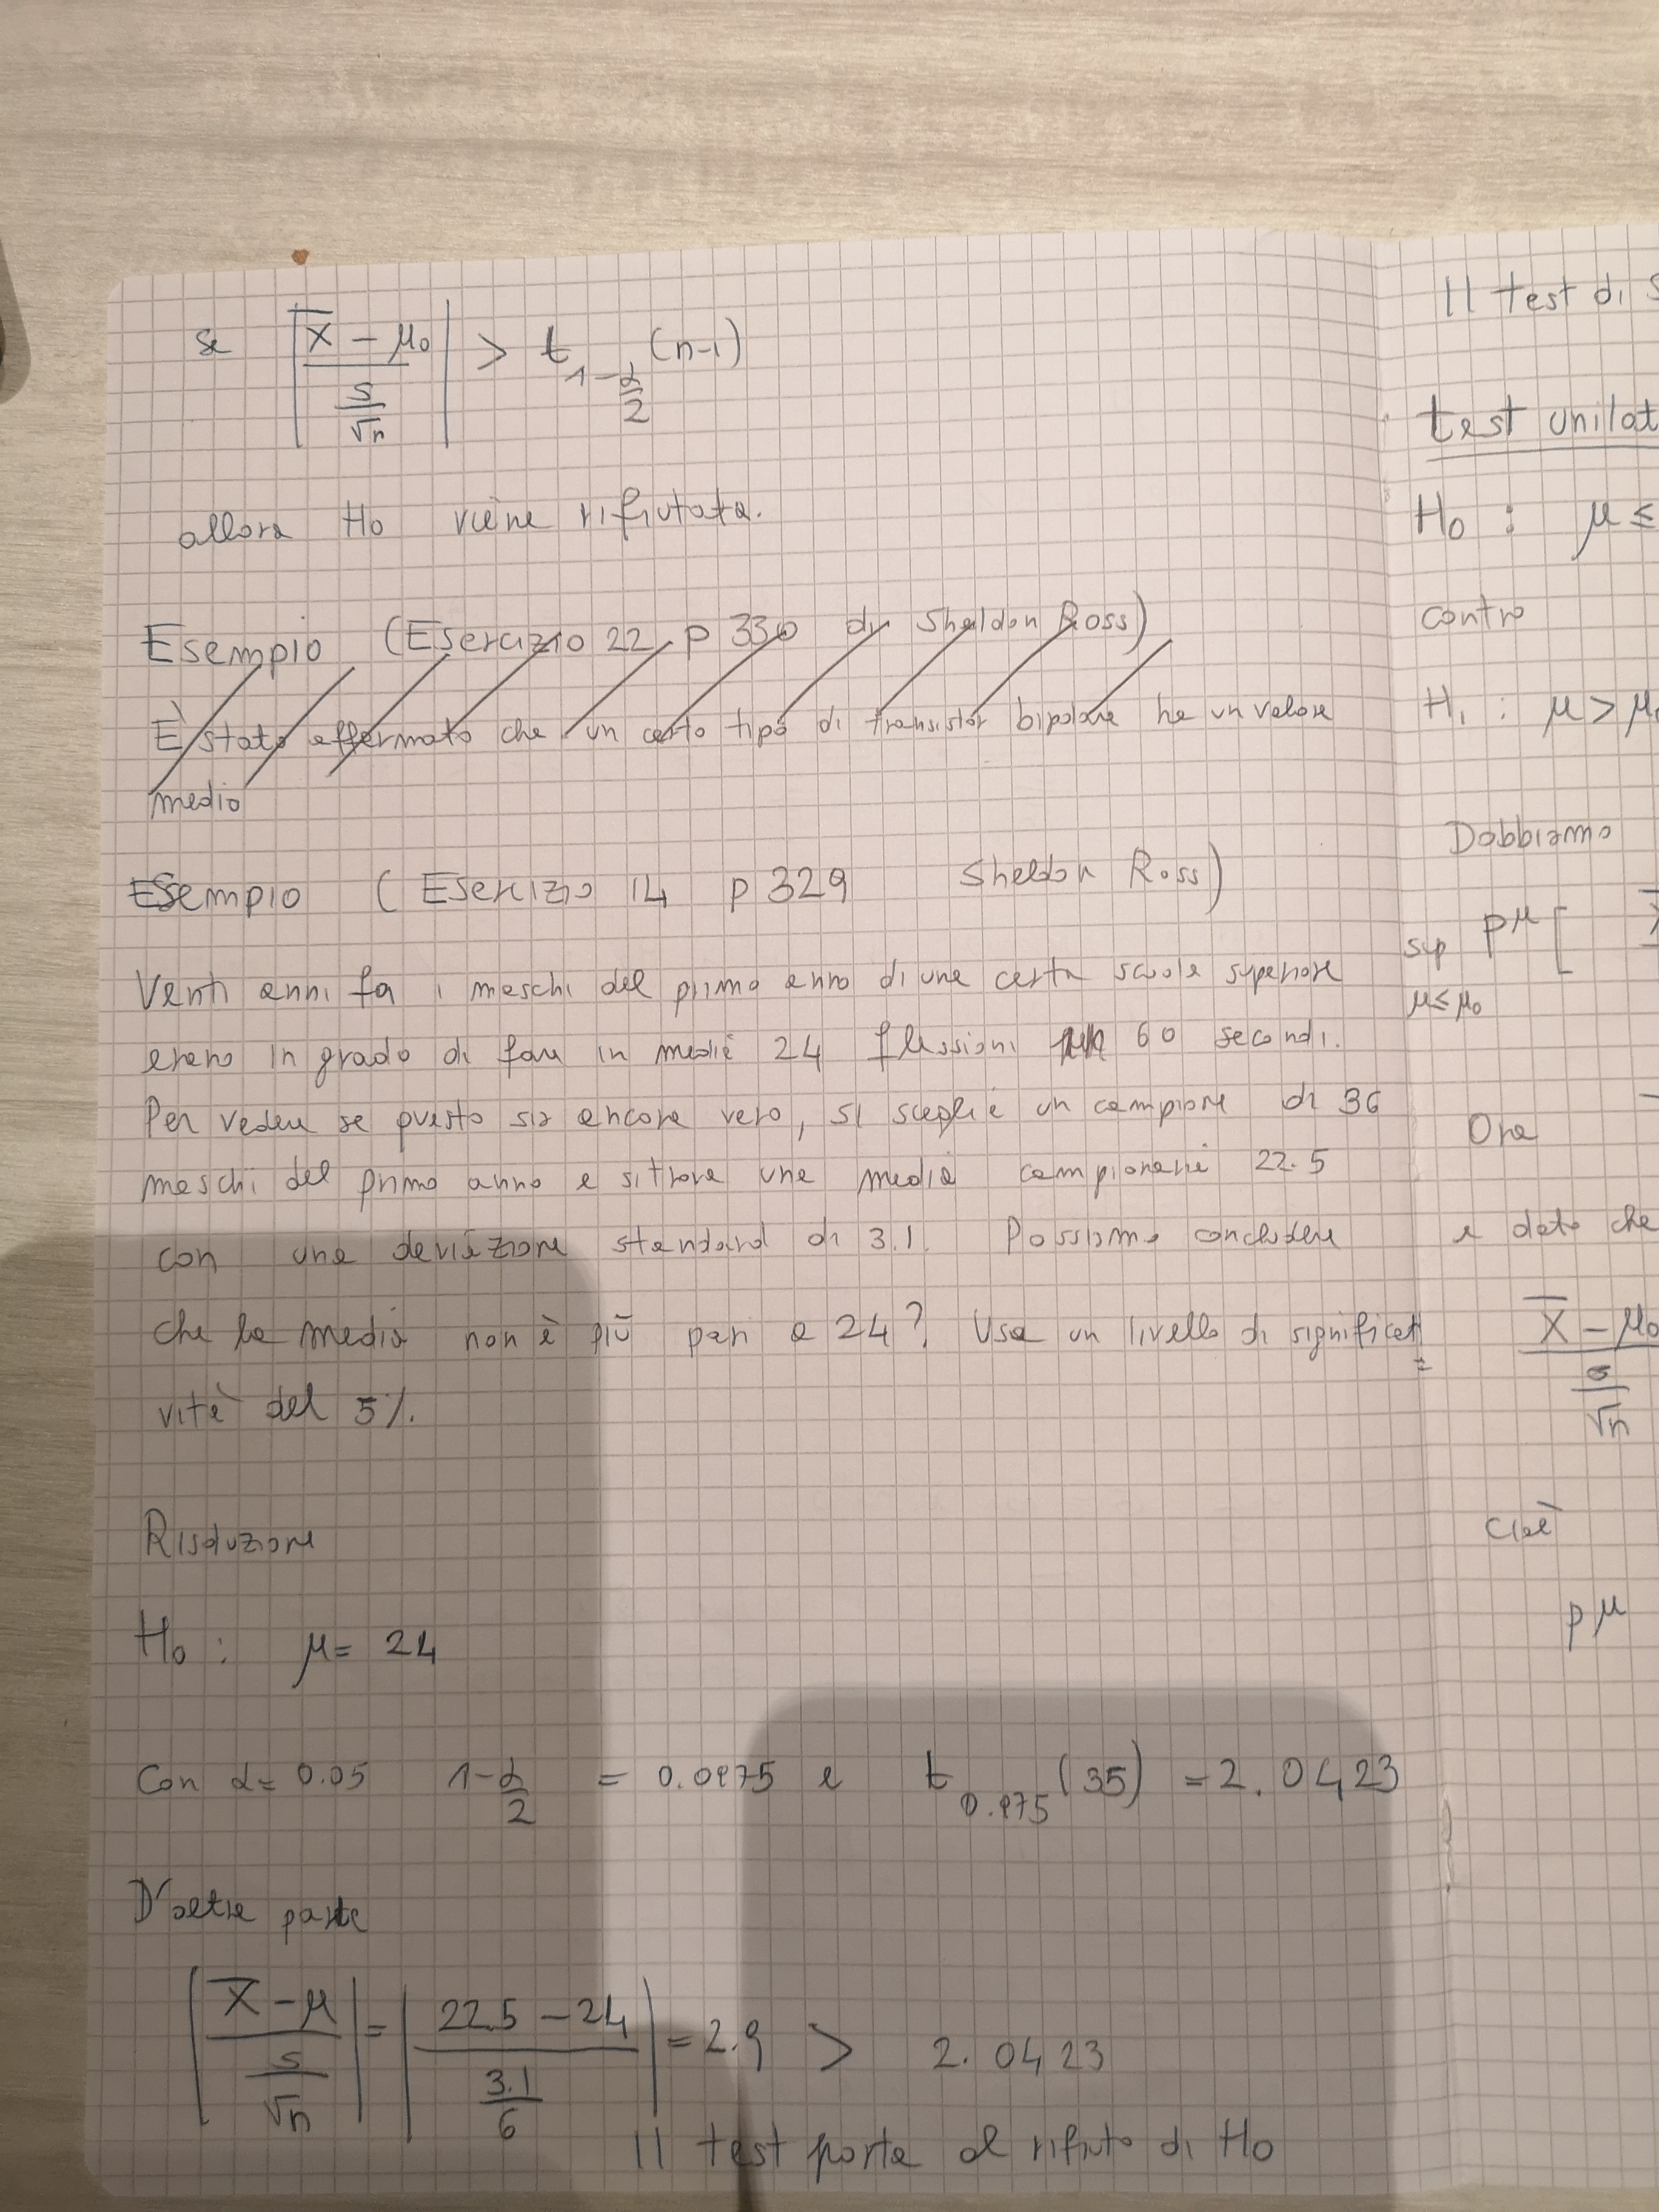 se | X̄ - μ₀ / (s/√n) | > t 1-α/2 (n-1)
allora H₀ viene rifiutata.
Esempio (Esercizio 22 p 330 di Sheldon Ross)
È stato affermato che un certo tipo di transistor bipolare ha un valore
medio
Esempio (Esercizio 14 p 329 Sheldon Ross)
Venti anni fa i maschi del primo anno di una certa scuola superiore
erano in grado di fare in media 24 flessioni in 60 secondi.
Per vedere se questo sia ancora vero, si sceglie un campione di 36
maschi del primo anno e si trova una media campionaria 22.5
con una deviazione standard di 3.1. Possiamo concludere
che la media non è più pari a 24? Usa un livello di significati=
vità del 5%.
Risoluzione
H₀ : μ = 24
Con α = 0.05 1-α/2 = 0.0975 e t 0.975 (35) = 2.0423
D'altra parte
| X̄ - μ / (s/√n) | = | 22.5 - 24 / (3.1/6) | = 2.9 > 2.0423
Il test porta al rifiuto di H₀
Il test di
test unilat
H₀ : μ ≤
contro
H₁ : μ > μ₀
Dobbiamo
sup Pμ [
μ ≤ μ₀
Ora
e dato che
X̄ - μ₀ / (s/√n)
Cioè
Pμ